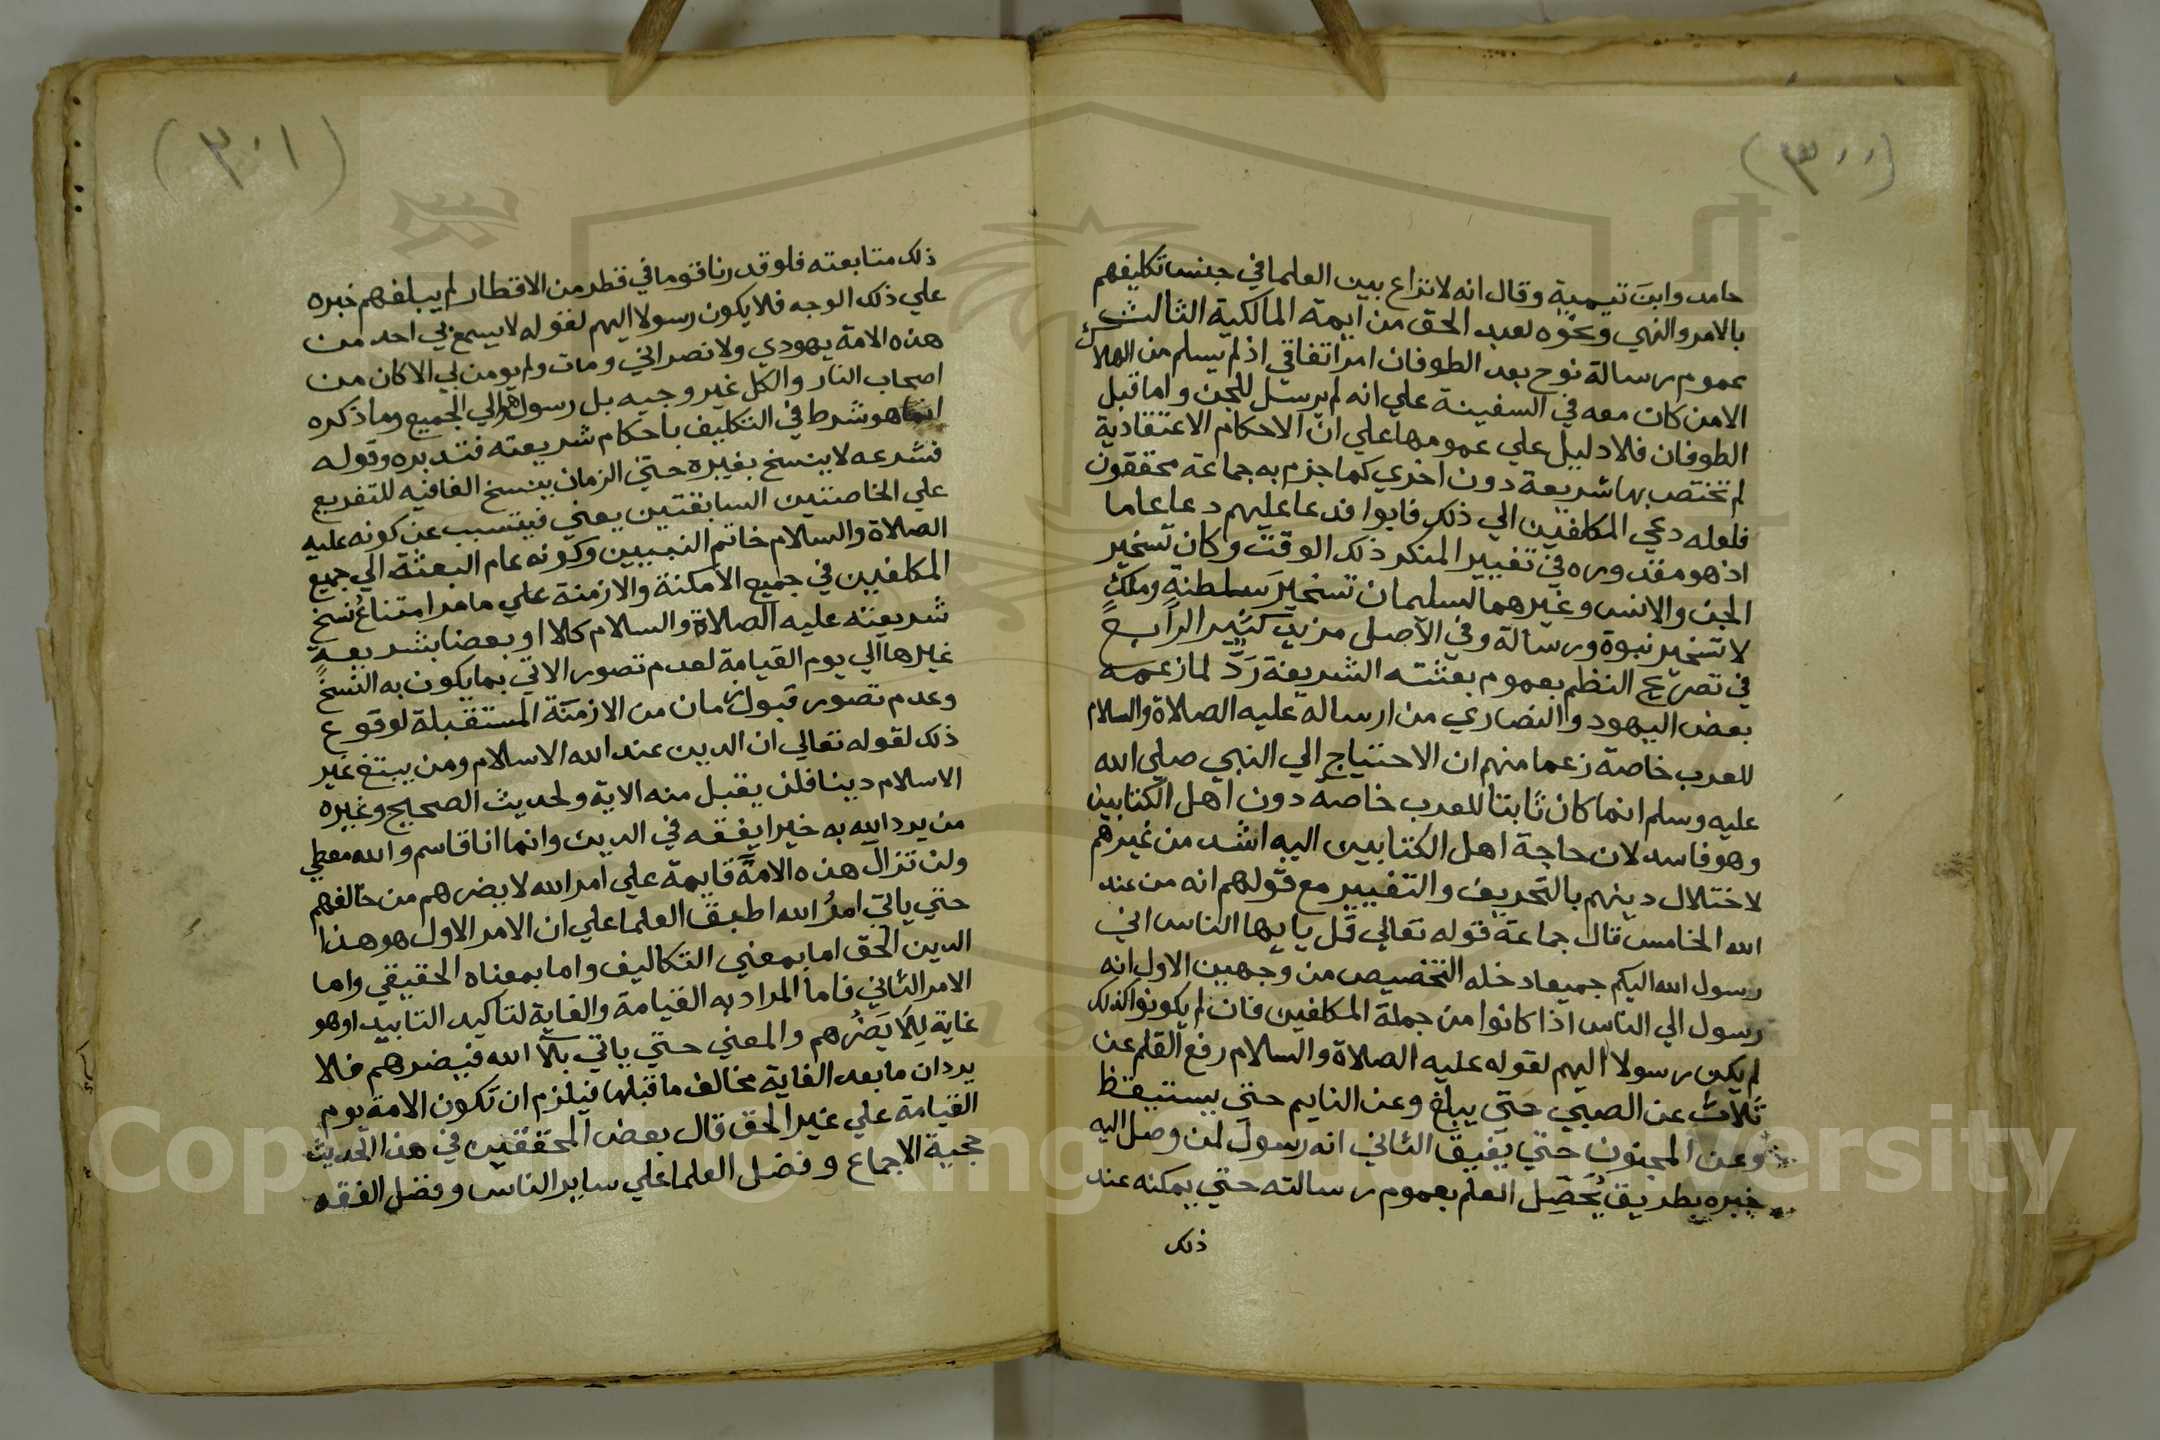 (٣٠٠)
حامد وابن تيمية وقال انه لا نزاع بين العلما في جنس تكليفهم
بالامر والنهي ونحوه لعبد الحق من ايمة المالكية الثالث
عموم رسالة نوح بعد الطوفان امر اتفاقي اذ لم يسلم من الهلاك
الامن كان معه في السفينة علي انه لم يرسل للجن واما قبل
الطوفان فلا دليل علي عمومها علي ان الاحكام الاعتقادية
لم تختص بها شريعة دون اخري كما جزم به جماعة محققون
فلعله دعي المكلفين الي ذلك فابوا فدعا عليهم دعا عاما
اذ هو مقدوره في تغيير المنكر ذلك الوقت وكان تسخير
الجن والانس وغيرهما لسليمان تسخير سلطنة وملك
لا تسخير نبوة ورسالة وفي الاصل مزيد كثير الرابع
في تصريح النظم بعموم بعثته الشريفة رد لما زعمه
بعض اليهود والنصاري من ارساله عليه الصلاة والسلام
للعرب خاصة زعما منهم ان الاحتياج الي النبي صلي الله
عليه وسلم انما كان ثابتا للعرب خاصة دون اهل الكتابين
وهو فاسد لان حاجة اهل الكتابين اليه اشد من غيرهم
لاختلال دينهم بالتحريف والتغيير مع قولهم انه من عند
الله الخامس قال جماعة قوله تعالي قل يايها الناس اني
رسول الله اليكم جميعا دخله التخصيص من وجهين الاول انه
رسول الي الناس اذا كانوا من جملة المكلفين فان لم يكونوا كذلك
لم يكن رسولا اليهم لقوله عليه الصلاة والسلام رفع القلم عن
ثلاث عن الصبي حتي يبلغ وعن النايم حتي يستيقظ
وعن المجنون حتي يفيق الثاني انه رسول لمن وصل اليه
خبره بطريق يحصل العلم بعموم رسالته حتي يمكنه عند
ذلك
(٣٠١)
ذلك متابعته فلو قدرنا قوما في قطر من الاقطار لم يبلغهم خبره
علي ذلك الوجه فلا يكون رسولا اليهم لقوله لا يسمع بي احد من
هذه الامة يهودي ولا نصراني ومات ولم يومن بي الا كان من
اصحاب النار والكل غير وجيه بل رسول الي الجميع وما ذكره
انما هو شرط في التكليف باحكام شريعته فتدبره وقوله
فشرعه لا ينسخ بغيره حتي الزمان ينسخ الفافيه للتفريع
علي الخاصتين السابقتين يعني فيتسبب عن كونه عليه
الصلاة والسلام خاتم النبيين وكونه عام البعثة الي جميع
المكلفين في جميع الامكنة والازمنة علي ما مر امتناع نسخ
شريعته عليه الصلاة والسلام كلا او بعضا بشريعة
غيرها الي يوم القيامة لعدم تصور الاتي بما يكون به النسخ
وعدم تصور قبول زمان من الازمنة المستقبلة لوقوع
ذلك لقوله تعالي ان الدين عند الله الاسلام ومن يبتغ غير
الاسلام دينا فلن يقبل منه الاية ولحديث الصحيح وغيره
من يرد الله به خيرا يفقه في الدين وانما انا قاسم والله معطي
ولن تزال هذه الامة قايمة علي امر الله لا يضرهم من خالفهم
حتي ياتي امر الله اطبق العلما علي ان الامر الاول هو هذا
الدين الحق اما بمعني التكاليف واما بمعناه الحقيقي واما
الامر الثاني فاما المراد به القيامة والغاية لتاكيد التابيد او هو
غاية للا يضرهم والمعني حتي ياتي بلا الله فيضرهم فلا
يرد ان ما بعد الغاية مخالف ما قبلها فيلزم ان تكون الامة يوم
القيامة علي غير الحق قال بعض المحققين في هذا الحديث
حجية الاجماع وفضل العلما علي ساير الناس وفضل الفقه
Copyright © King Saud University